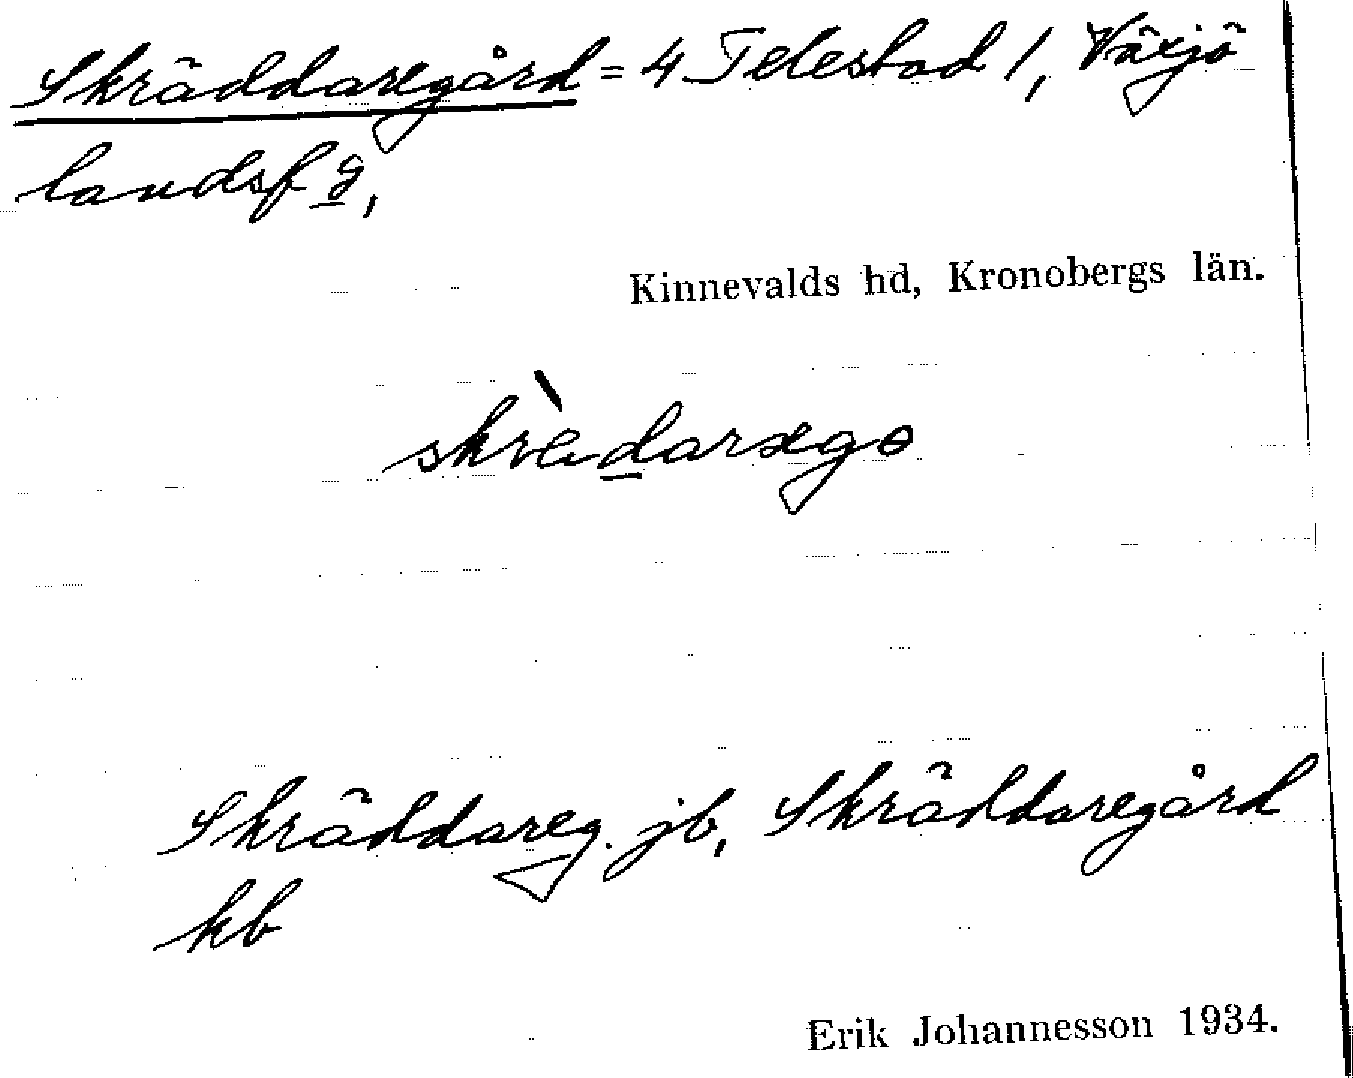 Skräddaregård = 4 Telestad 1, Växjö
landsf g,
Kinnevalds hd, Kronobergs län.
skrèdarægo
Skräddareg. jb, Skräddaregård
kb
Erik Johannesson 1934.